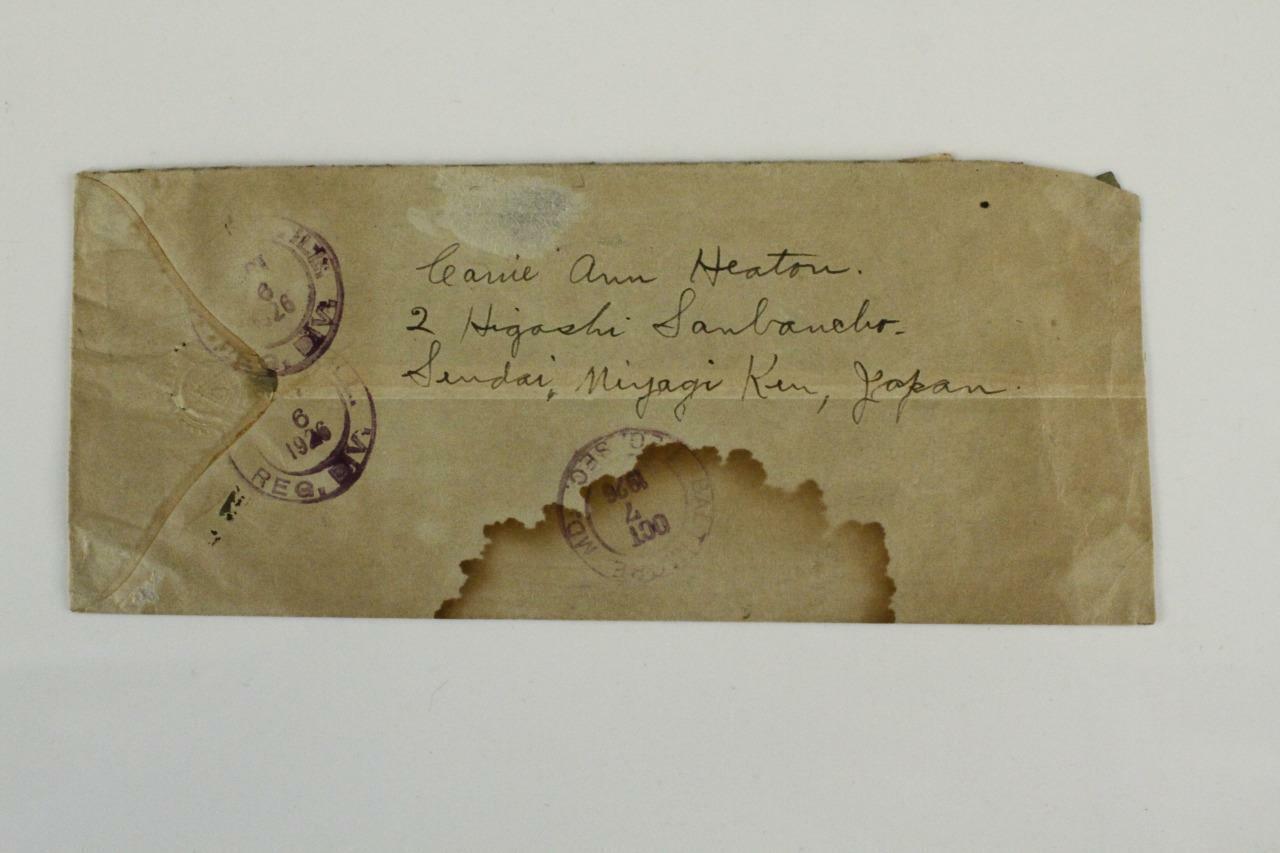 Carrie Ann Heaton.
2 Higashi Sanbancho.
Sendai, Miyagi Ken, Japan.
6
1926
REG. DIV.
6
1926
REG. DIV.
MD.
SEC.
OCT
7
1926